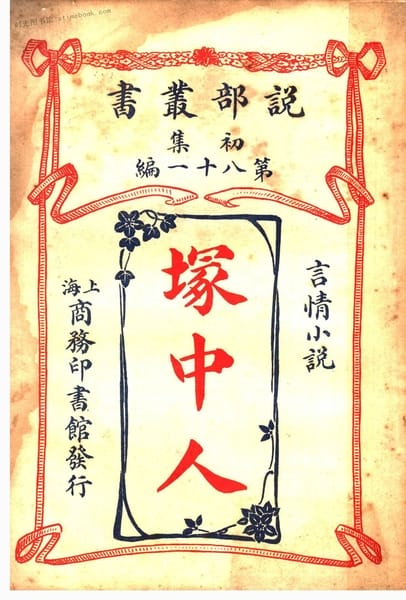 时光图书馆 · stimebook.com
説部叢書
初集
第八十一編
言情小説
塚中人
上海
商務印書館發行